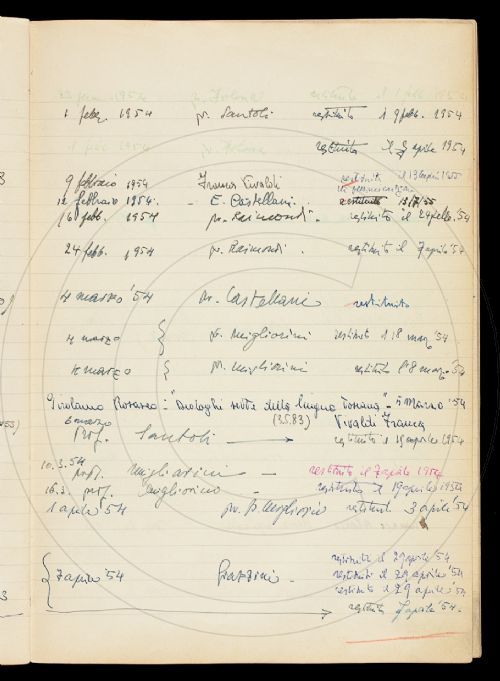 1 febbr. 1954 pr. Santoli restituito il 9 febb. 1954
restituito il aprile 1954
9 febbraio 1954 Franca Vivaldi restituito il 1955
12 febbraio 1954. - E. Castellani. restituito 13/7/55
16 febb. 1954 pr. Raimondi. restituito il 24 febb. '54
24 febb. 1954 pr. Raimondi. restituito il 7 aprile '54
4 marzo '54 Dr. Castellani restituito
4 marzo { pr. Migliorini restituito il 18 marz '54
4 marzo { pr. Migliorini restituito 18 marzo '54
Girolamo Rosasco: "Dialoghi sette della lingua toscana" - 5 Marzo '54
6 marzo (3.5.83) Vivaldi Franca
Prof. Santoli → restituito il aprile 1954
10.3.54
prof. Migliorini - restituito il 7 aprile 1954
16.3. prof. Migliorino - restituito il 19 aprile 1954
1 aprile '54 pr. B. Migliorini restituito 3 aprile '54
restituiti il 29 aprile '54
{ 7 aprile '54 Grazzini - restituiti il 29 aprile '54
restituito il 29 aprile '54
→ restituito aprile '54.